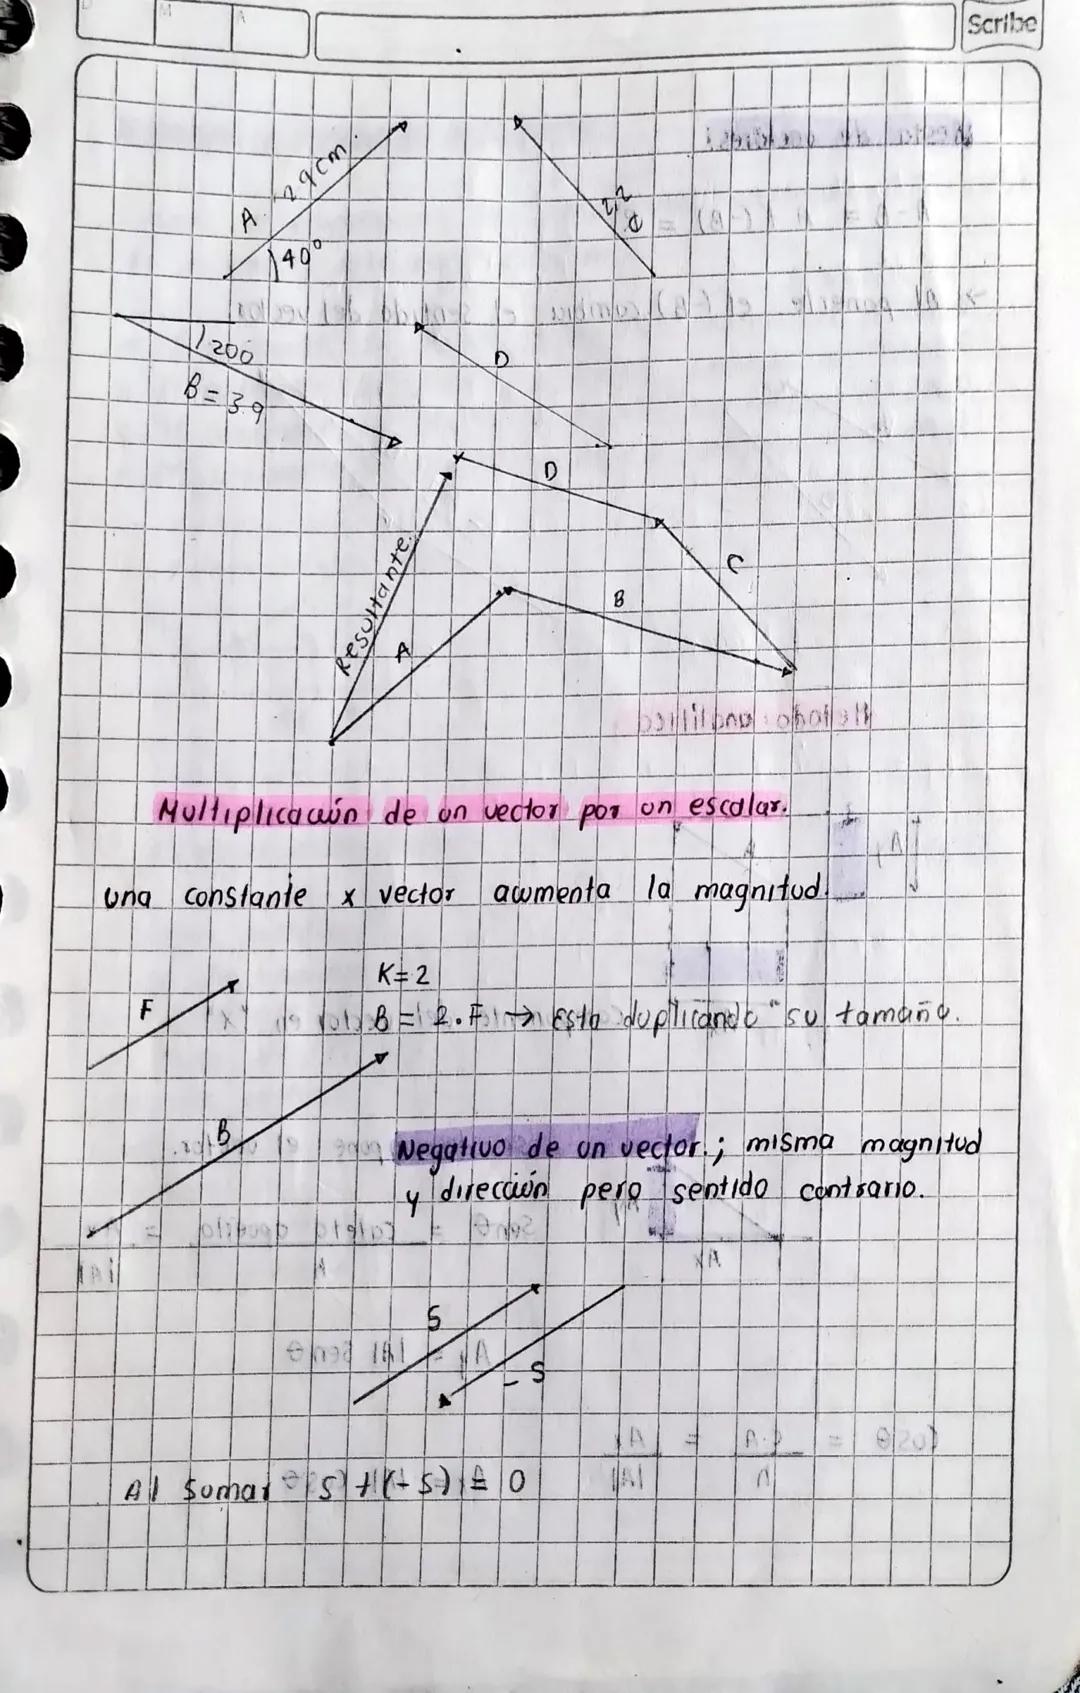 Scribe
D M A
A 2.9cm.
40°
2,2
C
200
B = 3.9
D
D
Resultante.
A
B
C
Multiplicación de un vector por un escalar.
una constante x vector aumenta la magnitud.
K=2
F
B = 2.F → Esta duplicando su tamaño.
B
Negativo de un vector.; misma magnitud
y dirección pero sentido contrario.
S
-S
Al sumar S + (-S) = 0